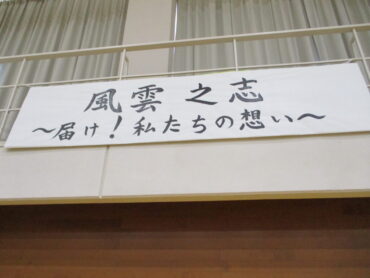 風雲之志
〜届け!私たちの想い〜